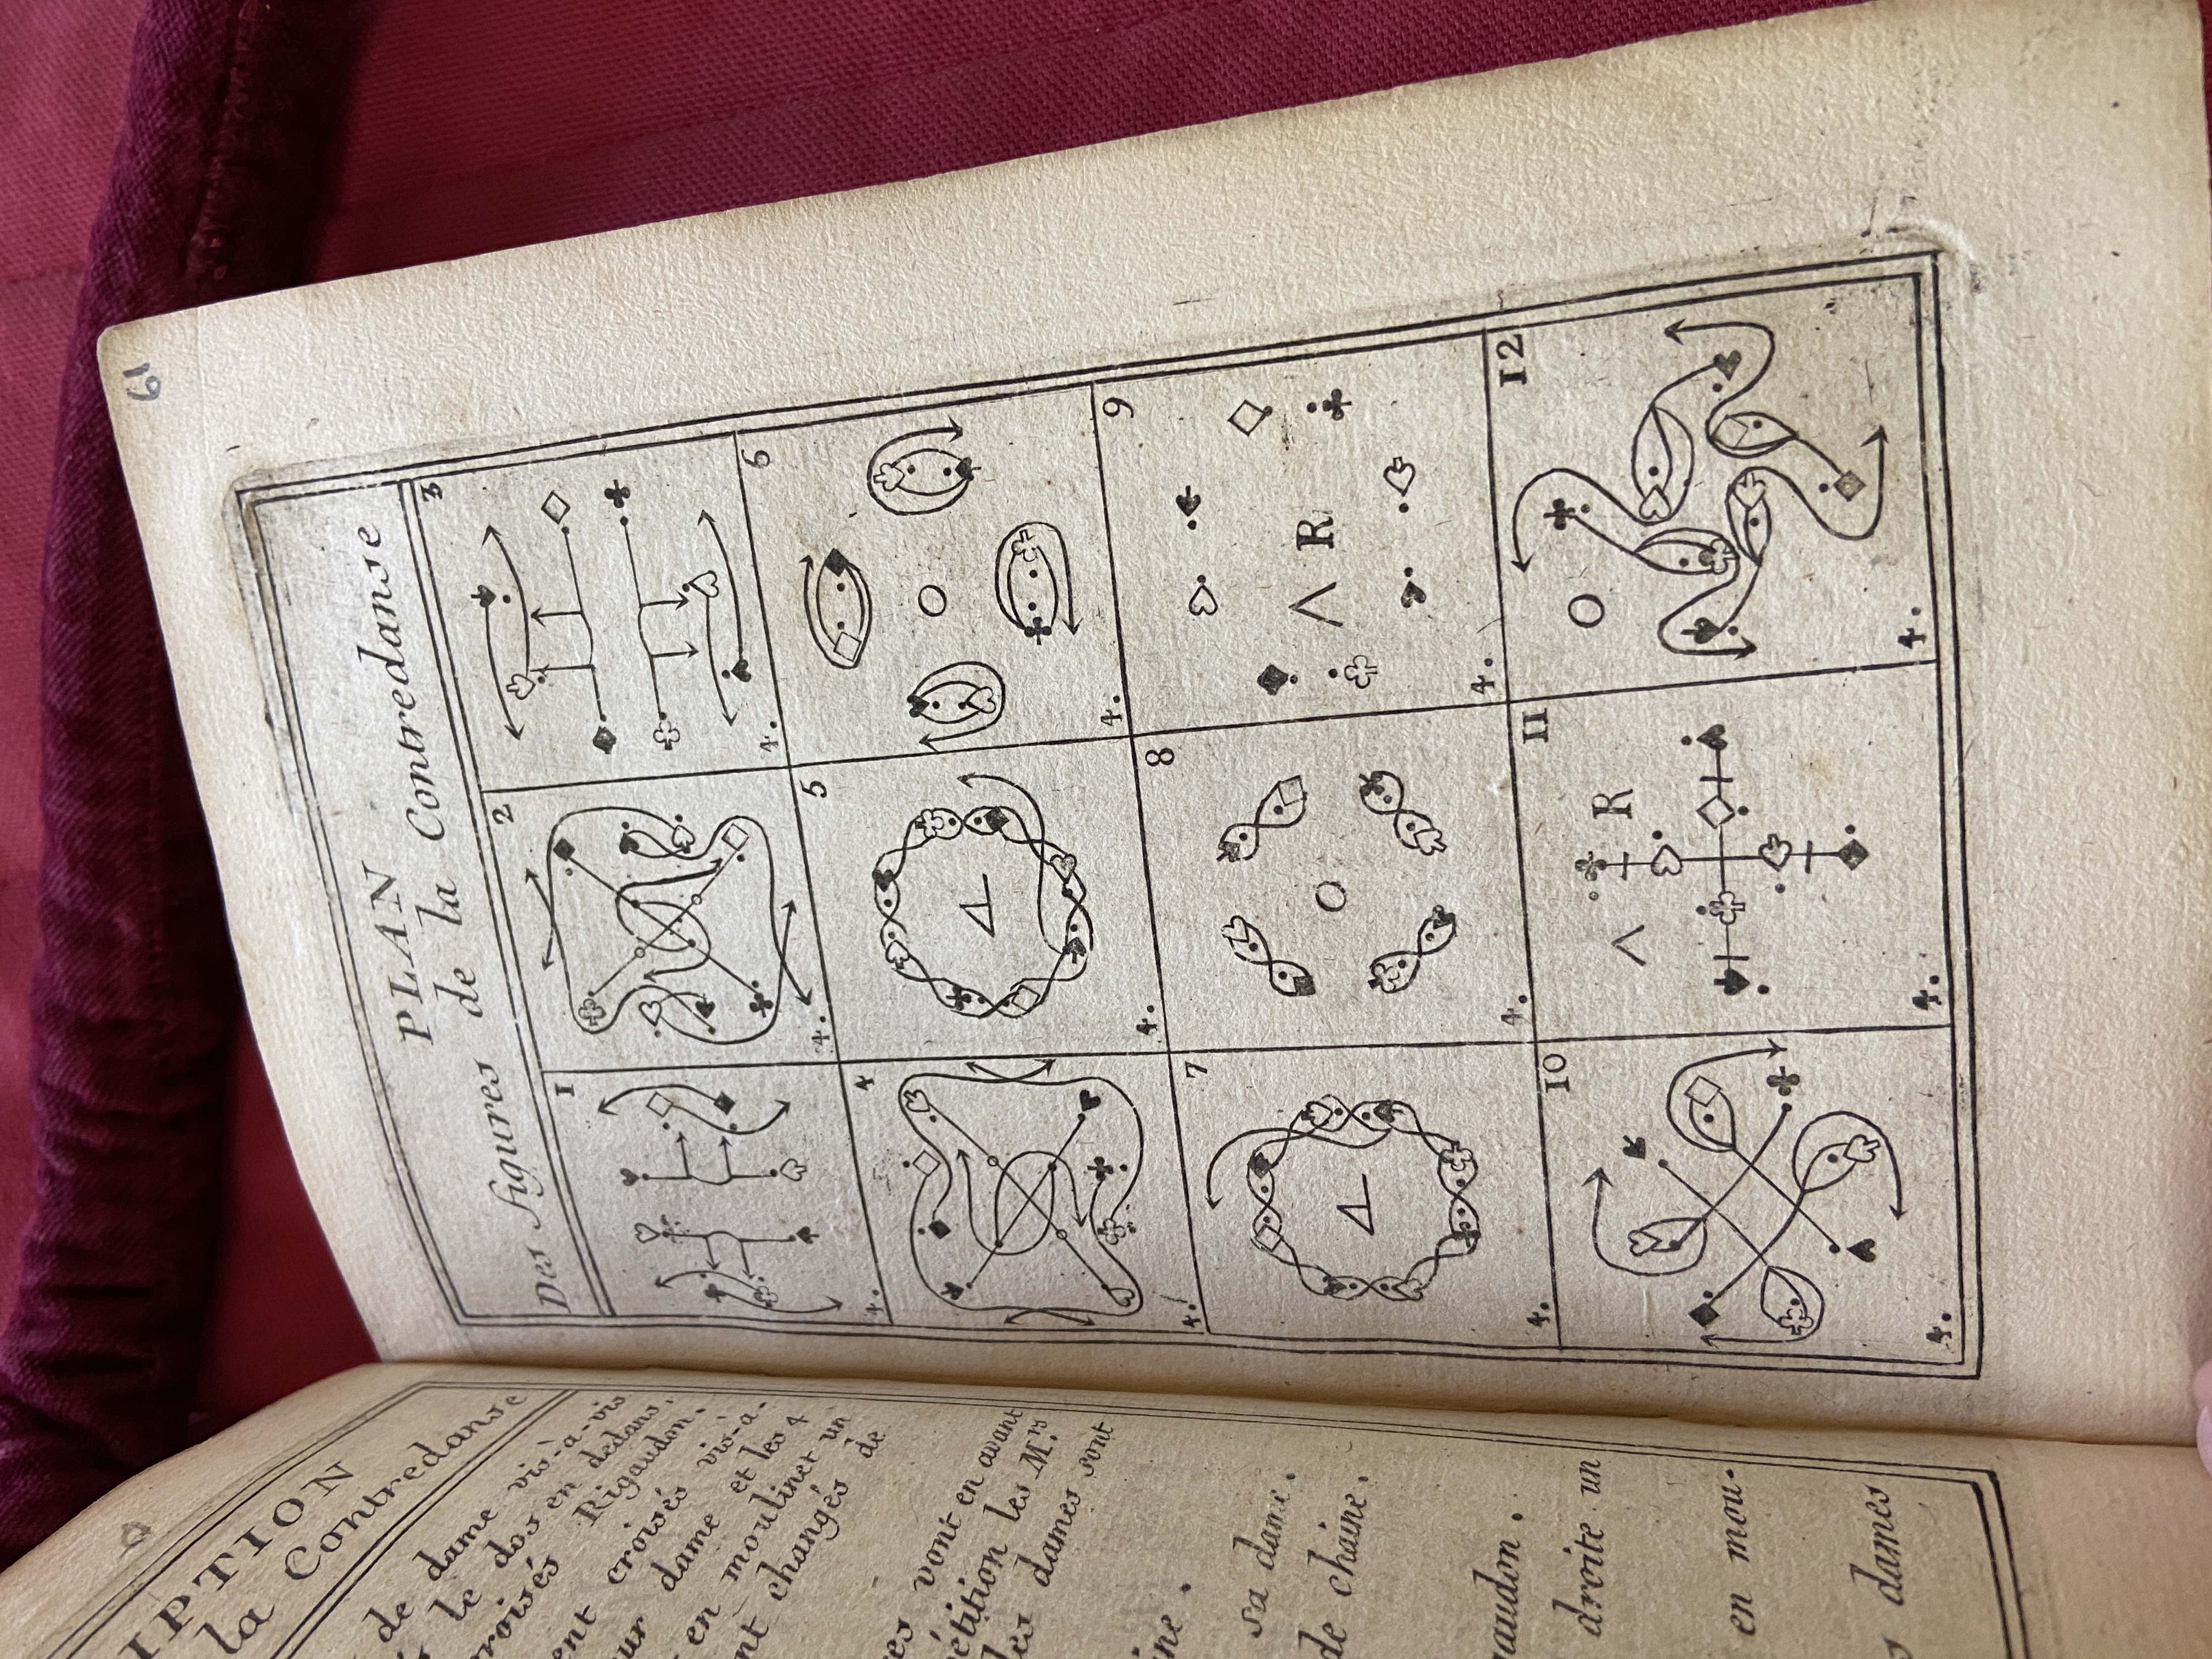 IPTION
la Contredanse
de dame vis-à-vis
le dos en dedans,
croisés Rigaudon.
croisés vis-à-
dame et les 4
en moulinet un
changés de
vont en avant
les M.rs
les dames sont
sa dame.
de chaine.
droite un
en mou-
dames
PLAN
Des figures de la Contredanse
1
4.
2
4.
3
4.
4
4.
5
4.
6
O
4.
7
4.
8
O
4.
9
R
4.
10
4.
11
R
4.
12
O
4.